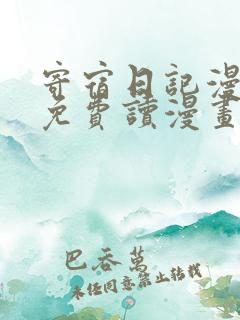 寄宿日記漫
免費讀漫畫
巴吞萬
未经同意禁止转载